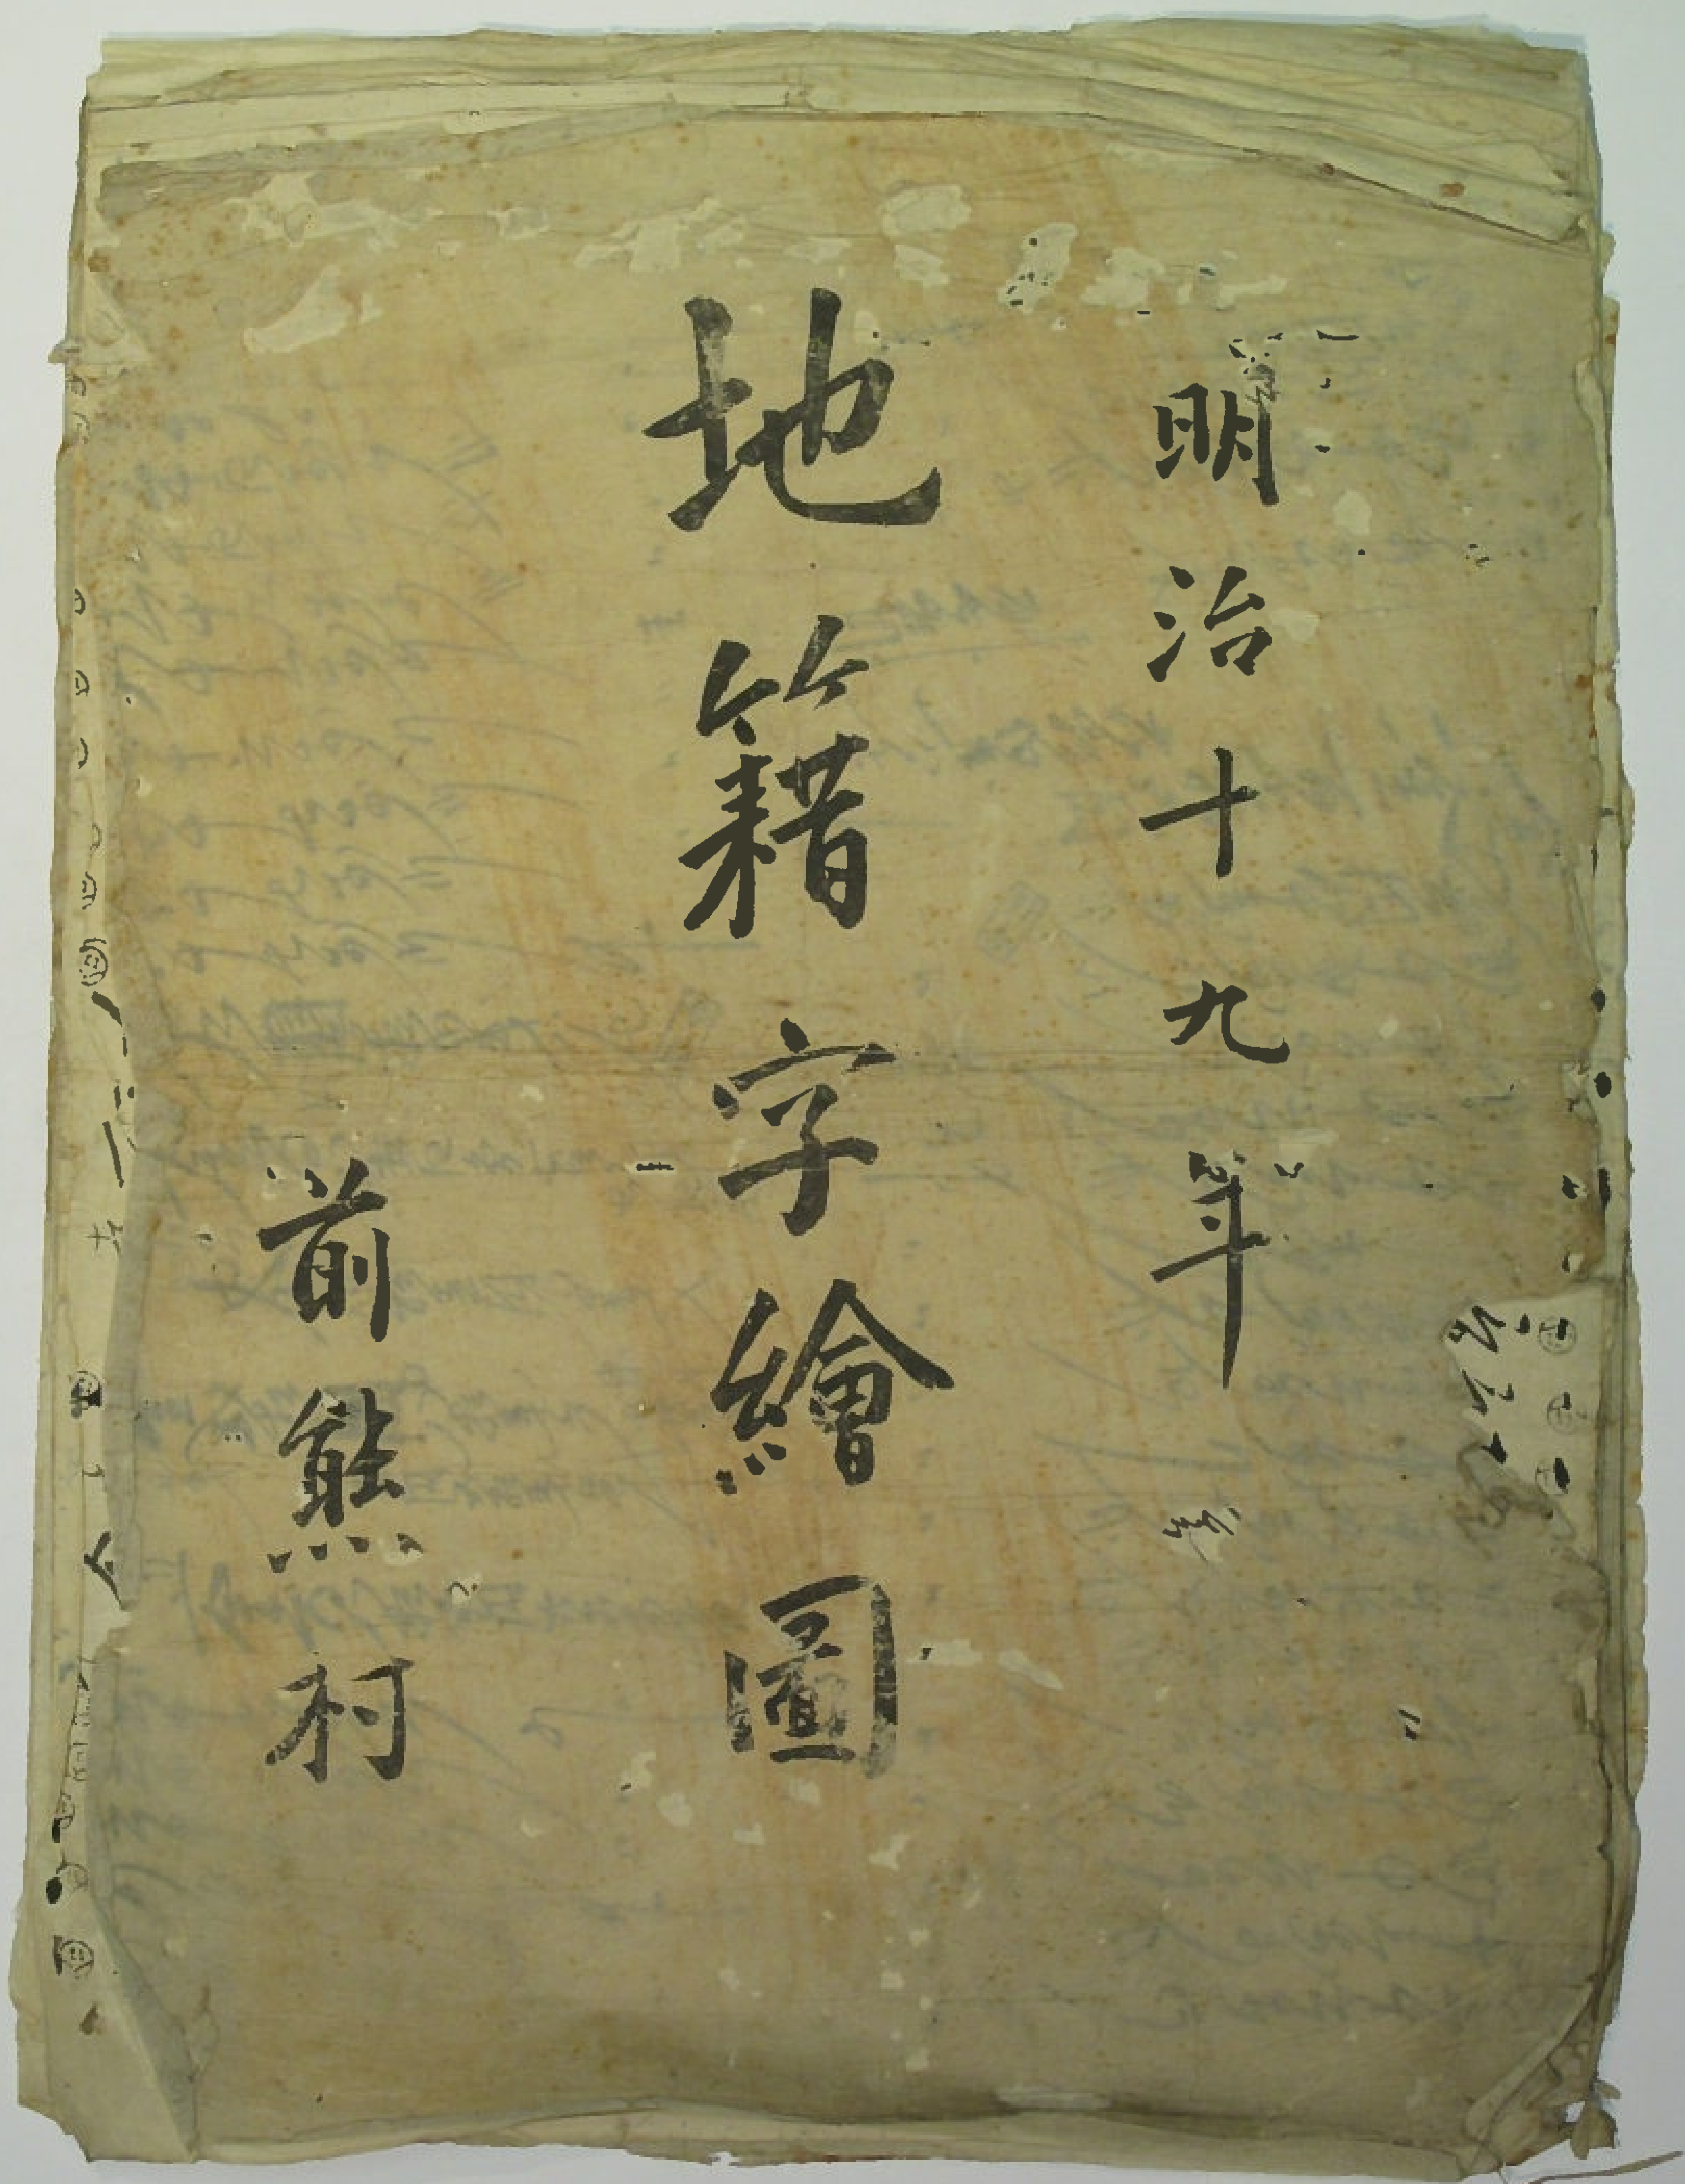 明治十九年
地籍字繪圖
前熊村